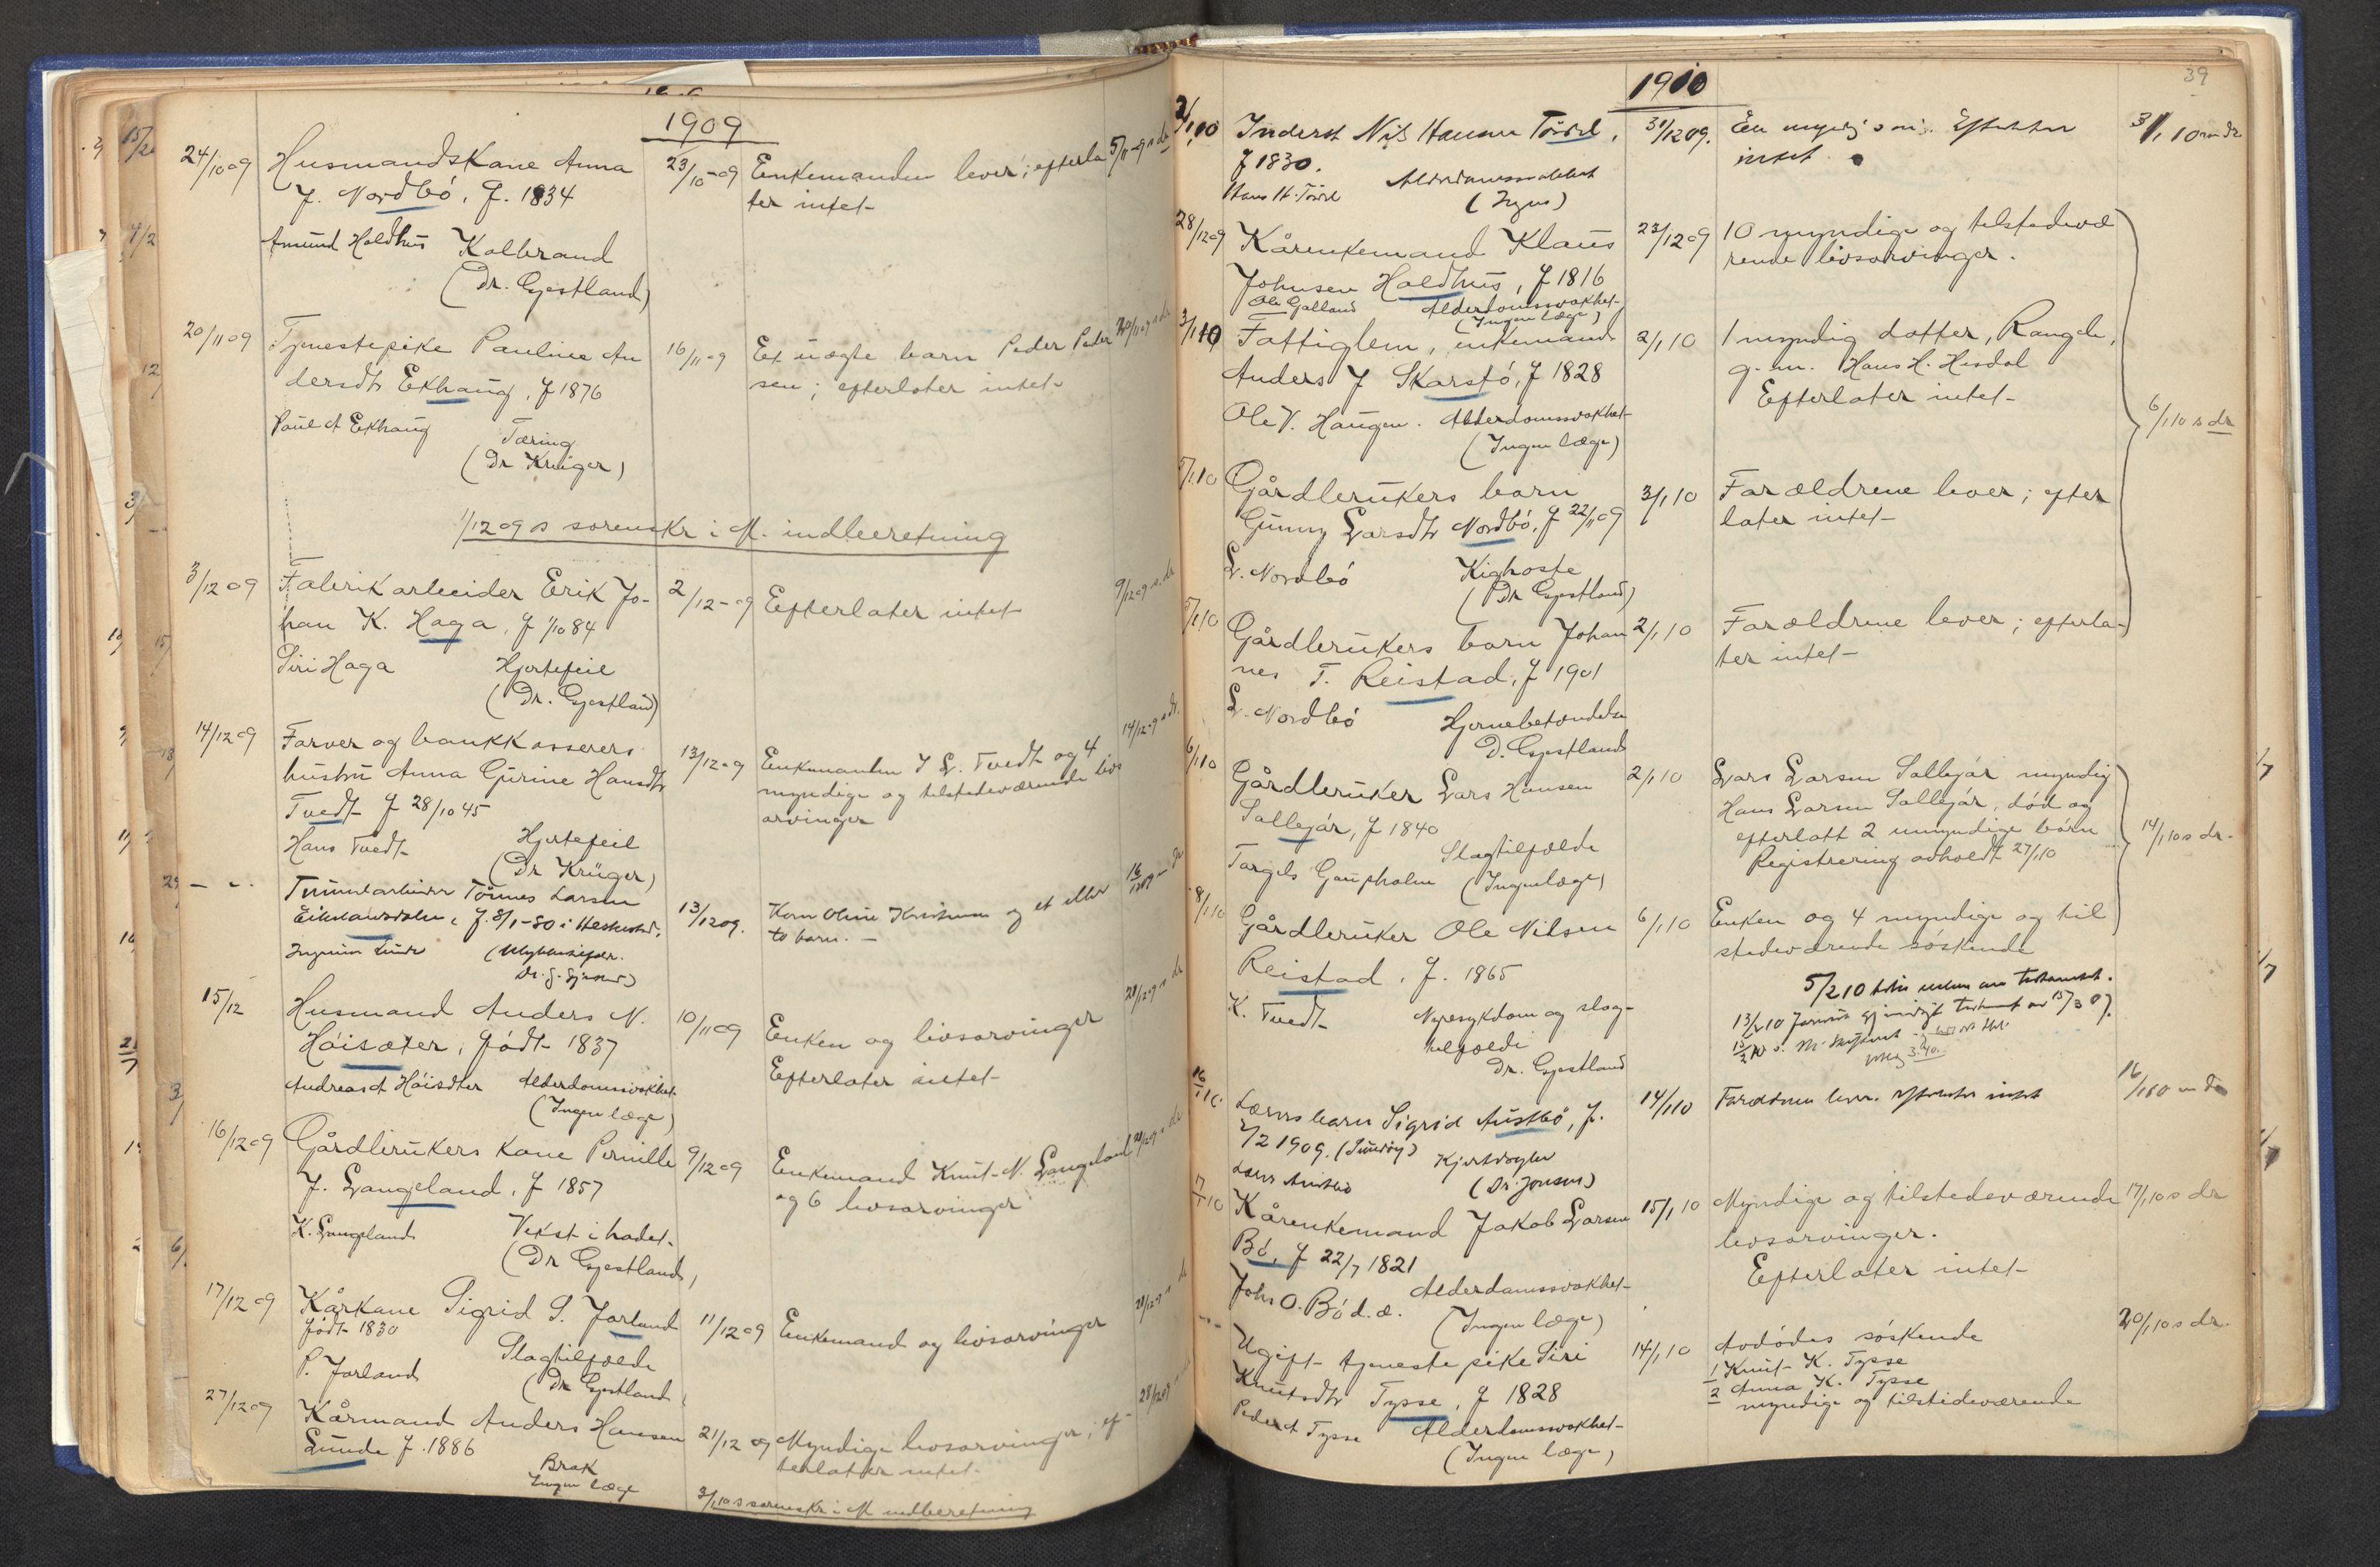 1909
24/10 09 Husmandskone Anna 23/10-09 Enkemanden lever; efterla 5/11-09 s dr
J. Nordbö, f. 1834 ter intet
Amund Holdhus Kolbrand
(Dr. Gjestland)
20/11 09 Tjenestepike Pauline An 16/11 09 Et uægte barn Peder Peder
dersdtr Ekhaug, f 1876 sen; efterlater intet
Poul A Ekhaug Tæring
(Dr Krüger)
1/12 09 s sorenskr i M. indberetning
3/12 09 Fabrikarbeider Erik Jo- 2/12-09 Efterlater intet 9/12 09 s. dr
han K. Haga, f 1/10 84
Siri Haga Hjertefeil
(Dr. Gjestland)
14/12 09 Farver og bankkasserers 13/12 09 Enkemanden J L. Tvedt og 4 14/12-09 s dr.
hustru Anna Gurine Hansdtr myndige og tilstedeværende livs
Tvedt f 28/10 45 arvinger
Hans Tvedt Hjertefeil
(Dr Krüger)
Tunnelarbeider Tönnes Larsen 13/12 09. Kone Oline Kristensen og et eller
Eikelandsdalen, f. 8/1-80 i Heskestad. to barn.
Ingvar Lunde (Ulykkestilfælde.
15/12 Husmand Anders N. 10/11 09 Enken og livsarvinger 20/12-09 s dr
Höisæter, född 1837 Efterlater intet
Andreas A Höisæter Alderdomssvakhet
(Ingen læge)
16/12 09 Gårdbrukers kone Pernille 9/12 09 Enkemand Knut N. Langeland
J. Langeland, f 1857 og 6 livsarvinger
K. Langeland Vekst i hodet
(Dr Gjestland)
17/12 09 Kårkone Sigrid S. Jorland 11/12 09 Enkemand og livsarvinger
född 1830
P. Jorland Slagtilfælde
(Dr Gjestland)
27/12 09 Kårmand Anders Hansen 21/12 09 Myndige livsarvinger; ef-
Lunde f. 1886 terlater intet.
Brok
Ingen læge
3/1 10 s sorenskr i M indberetning
1910
39
3/1 10 Inderst Nils Hansen Tösdal, 31/12 09. En myndig sön. Efterlater 3/1 10 m dr
f 1830. intet.
Hans H. Tösdal Alderdomssvakhet
(Ingen)
28/12 09 Kårenkemand Klaus 23/12 09 10 myndige og tilstedevæ
Johnsen Holdhus, f 1816 rende livsarvinger.
Ole Golland Alderdomssvakhet
(Ingen læge)
3/1 10 Fattiglem, enkemand 2/1 10 1 myndig datter, Rangele,
Anders J Skarstö, f 1828 g. m. Hans H. Hisdal
Efterlater intet
Ole V. Haugen. Alderdomssvakhet
(Ingen læge)
6/1 10 s dr
5/1 10 Gårdbrukers barn 3/1 10 Forældrene lever; efter
Gunny Larsdtr Nordbö, f 22/11 09 later intet
L. Nordbö Kighoste
(Dr Gjestland)
5/1 10 Gårdbrukers barn Johan 2/1 10 Forældrene lever; efterla-
nes T. Reistad, f 1901 ter intet
L. Nordbö Hjernebetændelse
D. Gjestland
6/1 10 Gårdbruker Lars Hansen 2/1 10 Lars Larsen Sallejár myndig
Sallejár, f 1840 Hans Larsen Sallejár, död og
efterlatt 2 umyndige börn
Slagtilfælde Registrering avholdt 27/1 10
Torgils Gaupholm (Ingen læge)
14/1 10 s dr.
8/1 10 Gårdbruker Ole Nilsen 6/1 10 Enken og 4 myndige og til
Reistad, f. 1865 stedeværende söskende
K. Tvedt Nyresykdom og slag-
tilfælde
Dr. Gjestland
16/1 10 Lærers barn Sigrid Austbö, f. 14/1 10 Forældrene lever. Efterlater intet 16/1 10 m dr
2/2 1909.
Lærer Austbö Kjertelsyke
(Dr. Jonsen)
17/1 10 Kårenkemand Jakob Larsen 15/1 10 Myndige og tilstedeværende 17/1 10 s dr
Bö, f 22/7 1821 livsarvinger.
Efterlater intet
John O. Bö d.æ. Alderdomssvakhet
(Ingen læge)
Ugift tjenestepike Siri 14/1 10 Avdödes söskende 20/1 10 s dr.
Knutsdtr Tysse, f 1828 1 Knut K. Tysse
2 Anna K. Tysse
myndige og tilstedeværende
Peder A Tysse Alderdomssvakhet
(Ingen læge)